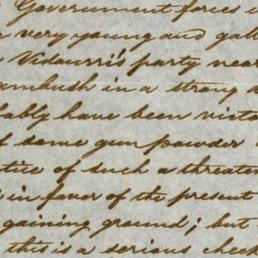 Government forces
very young and gall
Vidaurri's party near
ambush in a strong
ably have been victo
f some gun powder
tice of such a threaten
in favor of the present
gaining ground; but
this is a serious check